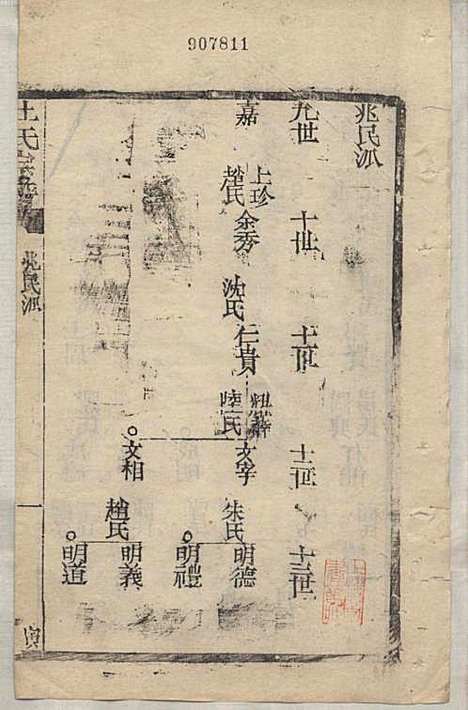 907811
兆民派
九世
十世
十一世
十二世
十三世
嘉
上珍
趙氏
余秀
沈氏
仁貴
陸氏
文宰
朱氏
明德
明禮
文相
趙氏
明義
明道
王氏宗譜
兆民派
一